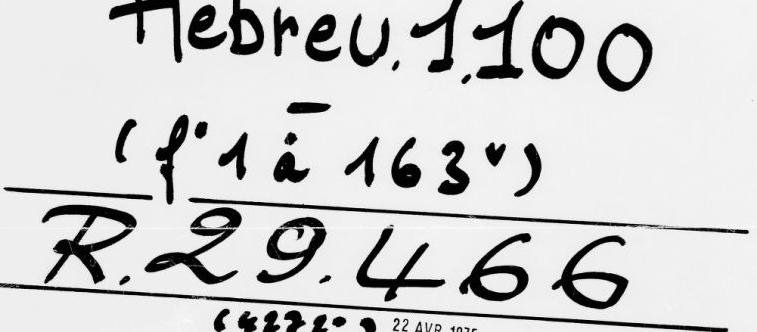 Hebreu.1.100
(f° 1 à 163 v)
R.29.466
22 AVR